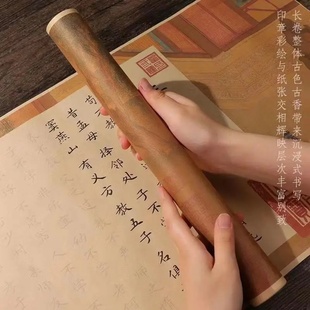 长卷整体古色古香带来沉浸式书写
印章彩绘与纸张交相辉映层次丰富别致
苟不
昔孟母择邻处子不
窦燕山有义方教五子名俱